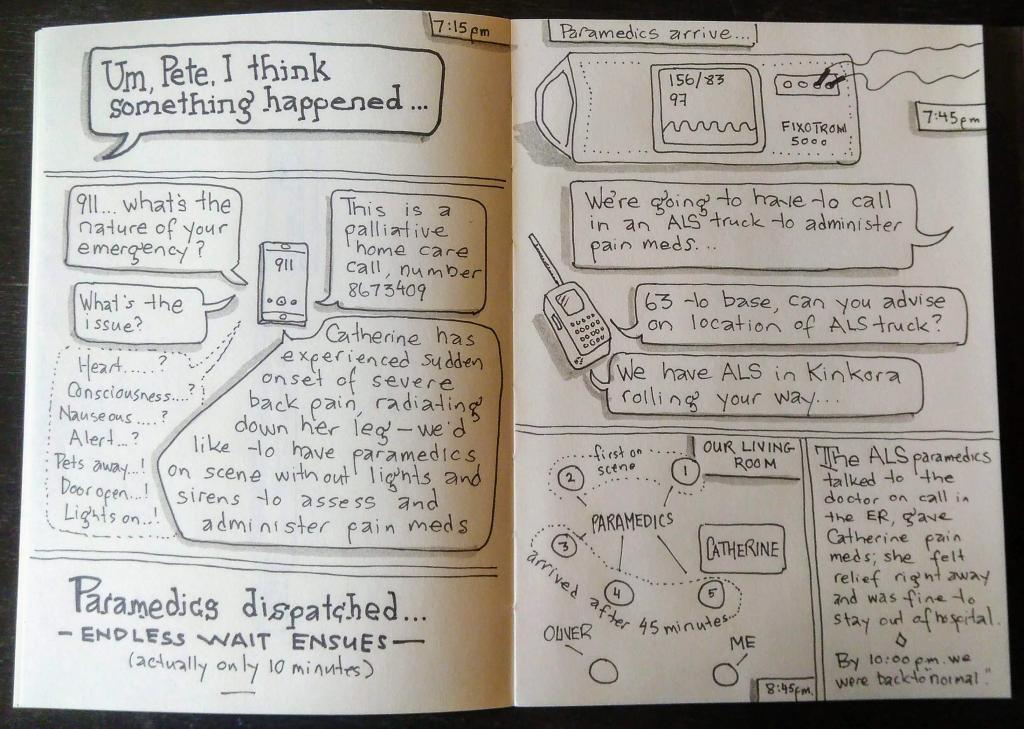 7:15pm
Um, Pete, I think
something happened...
911... what's the
nature of your
emergency?
This is a
palliative
home care
call, number
8673409
911
What's the
issue?
Heart......?
Consciousness....?
Nauseous.....?
Alert...?
Pets away...!
Door open...!
Lights on...!
Catherine has
experienced sudden
onset of severe
back pain, radiating
down her leg — we'd
like to have paramedics
on scene without lights and
sirens to assess and
administer pain meds
Paramedics dispatched...
— ENDLESS WAIT ENSUES —
(actually only 10 minutes)
Paramedics arrive...
156/83
97
FIXOTROM
5000
7:45pm
We're going to have to call
in an ALS truck to administer
pain meds...
63 to base, can you advise
on location of ALS truck?
We have ALS in Kinkora
rolling your way...
OUR LIVING
ROOM
first on
scene
1
2
PARAMEDICS
CATHERINE
3
4
5
arrived after 45 minutes...
OLIVER
ME
8:45pm.
The ALS paramedics
talked to the
doctor on call in
the ER, gave
Catherine pain
meds; she felt
relief right away
and was fine to
stay out of hospital.
By 10:00 pm we
were back to "normal."